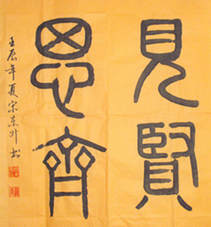 見賢
思齊
壬辰年夏宋東升書